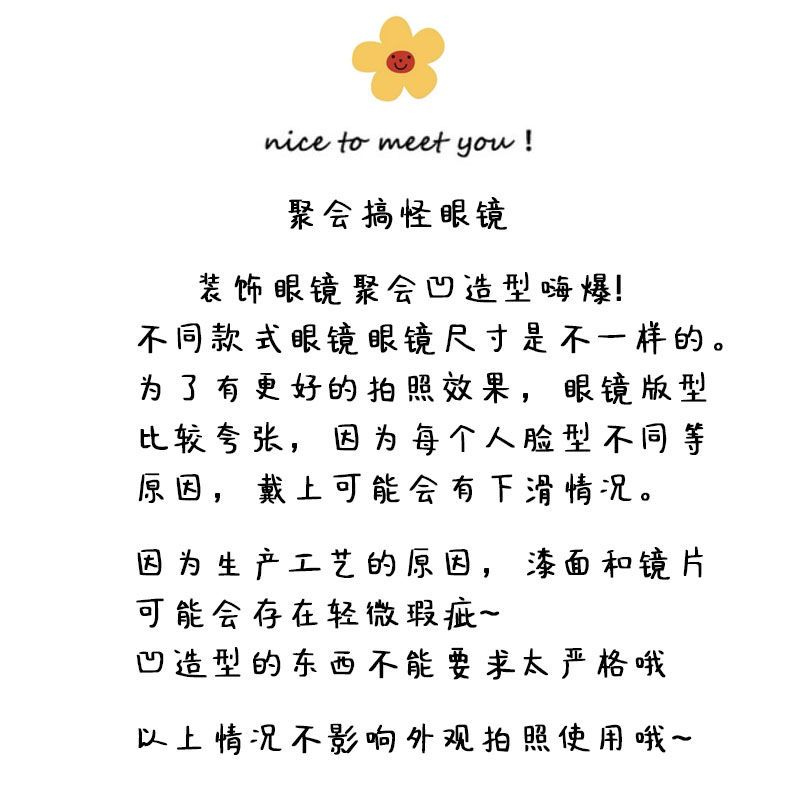 nice to meet you !
聚会搞怪眼镜
装饰眼镜聚会凹造型嗨爆!
不同款式眼镜眼镜尺寸是不一样的。
为了有更好的拍照效果，眼镜版型
比较夸张，因为每个人脸型不同等
原因，戴上可能会有下滑情况。
因为生产工艺的原因，漆面和镜片
可能会存在轻微瑕疵~
凹造型的东西不能要求太严格哦
以上情况不影响外观拍照使用哦~